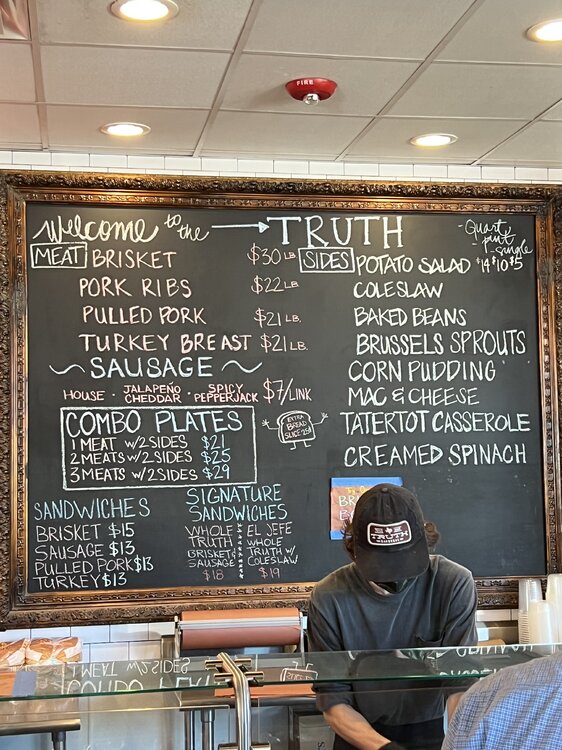 FIRE
welcome to the → TRUTH
MEAT
BRISKET $30 LB
PORK RIBS $22 LB.
PULLED PORK $21 LB.
TURKEY BREAST $21 LB.
~ SAUSAGE ~
HOUSE · JALAPEÑO CHEDDAR · SPICY PEPPERJACK $7/LINK
COMBO PLATES
1 MEAT W/2 SIDES $21
2 MEATS W/2 SIDES $25
3 MEATS W/2 SIDES $29
EXTRA
BREAD
SLICE 25¢
SANDWICHES
BRISKET $15
SAUSAGE $13
PULLED PORK $13
TURKEY $13
SIGNATURE
SANDWICHES
WHOLE
TRUTH
BRISKET &
SAUSAGE
$18
EL JEFE
WHOLE
TRUTH W/
COLESLAW
$19
SIDES
-Quart
-pint
-single
$14 $10 $5
POTATO SALAD
COLESLAW
BAKED BEANS
BRUSSELS SPROUTS
CORN PUDDING
MAC & CHEESE
TATERTOT CASSEROLE
CREAMED SPINACH
TRUTH